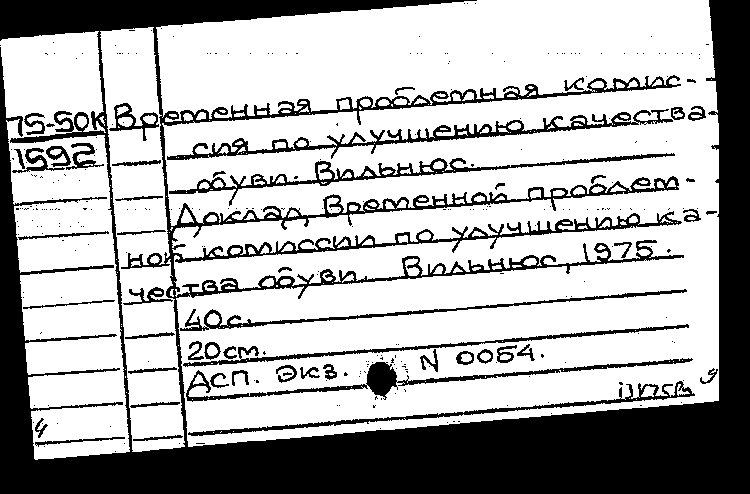 75-50К Временная проблемная комис-
1592 сия по улучшению качества
обуви. Вильнюс.
Доклад Временной проблем-
ной комиссии по улучшению ка-
чества обуви. Вильнюс, 1975.
40с.
20см.
АСП. Экз. N 0054.
4